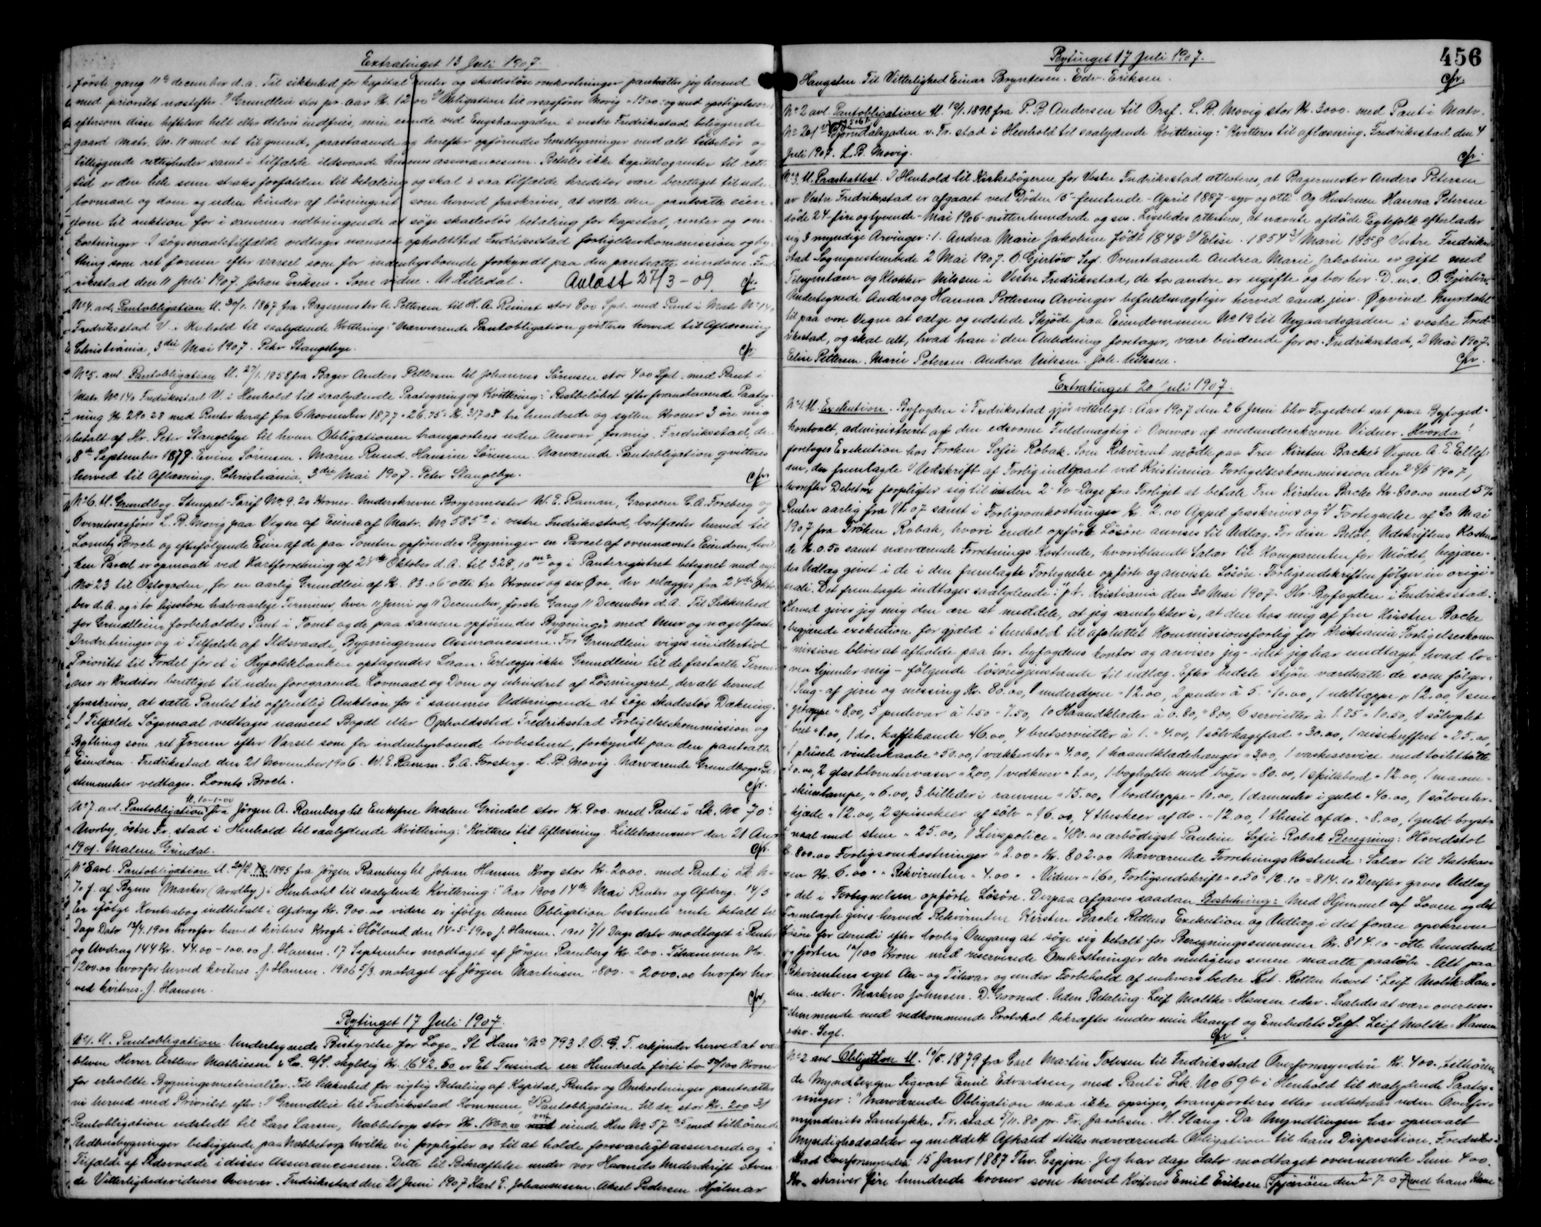 Extratinget 13 Juli 1907.
første gang 11te december d.a. Til sikkerhed for kapital renter og skadesløse omkostninger pantsætter jeg herved
med prioritet næstefter 1) Grundleie stor pr. aar Kr. 12.00 2) Obligation til overretssagfører Movig
eftersom disse heftelser helt eller delvis indfries, min eiende ved Enghaugsgaden i vestre Fredriksstad beliggende
gaard Matr. No. 11 med ret til grund, paastaaende og herefter opførende Husebygninger med alt tilbehør og
tilliggende rettigheder samt i tilfælde ildsvaade husenes assurancesum. Betales ikke kapital og renter til rette
tid er den hele sum straks forfalden til betaling og skal i saa tilfælde kreditor være berettiget til uden
lovmaal og dom og uden hinder af løsningsret som herved fraskrives, at sætte den pantsatte eien-
dom til auktion for i sammes udbringende at søge skadesløs betaling for kapital, renter og om-
kostninger. I søgsmaalstilfælde vedtages uanseet opholdssted Fredriksstad forligelseskommission og by-
thing som ret forum efter varsel som for indenbysboende forkyndt paa den pantsatte eiendom. Fre-
riksstad den 11 Juli 1907. Johan Eriksen. Som vidne. M. Lilledal. Avløst 27/3-09. cfr.
No 4. avl. Pantobligation U. 1867 fra Bagermester A. Pettersen til H. A. Reinert stor 800 Spd. med Pant i Matr. No 140
Fredriksstad V. i Henhold til saalydende Kvittering: Nærværende Pantobligation qvitteres herved til Aflæsning
Christiania, 3die Mai 1907. Peter Stangebye. cfr
No 5. avl. Pantobligation U. 27/1.1858 fra Bager Anders Pettersen til Johannes Sørensen stor 400 Spd. med Pant i
Matr. No 140 Fredriksstad V. i Henhold til saalydende Paategning og Kvittering: Restbeløbet efter foranstaaende Paateg-
ning Kr. 290.28 med Renter heraf fra 6 November 1877 = 26.75 = Kr. 317.03 tre hundrede og sytten Kroner 3 øre mig
betalt af Hr. Peter Stangebye til hvem Obligationen transporteres uden Ansvar for mig. Fredriksstad, de
8de September 1879. Marie Ruud. Hansine Sørensen. Nærværende Pantobligation qvitteres
herved til Aflæsning. Christiania, 3die Mai 1907. Peter Stangebye. cfr
No 6. U. Grundbog. Stempel-Tarif No 9. 20 Kroner. Underskrevne Borgermester W. E. Ramm, Grosserer C. A. Forsberg og
Overretssagfører L. P. Movig paa Vegne af Eierne af Matr. No 585a i vestre Fredriksstad, bortfæster herved til
Lorentz Broch og efterfølgende Eiere af de paa Tomten opførendes Bygninger en Parcel af ovennævnte Eiendom, hvil-
ken Parcel er opmaalt ved Kartforretning af 24de Oktober d.A. til 328,10 m2 og i Panteregistret betegnet med ny
No 23 til Ostegaden, for en aarlig Grundleie af Kr. 83.06 otti tre Kroner og sex Øre, der erlægges fra 24de Okto-
ber d.A. og i to ligestore halvaarlige Terminer, hver 11 Juni og 11 December, første Gang 11 December d.A. Til Sikkerhed
for Grundleien forbeholdes Pant i Tomten og de paa samme opførendes Bygninger med Mur og nagelfaste
Indretninger og i Tilfælde af Ildsvaade, Bygningernes Assurancesum. For Grundleien viges imidlertid
Prioritet til Fordel for et i Hypothekbanken optagendes Laan. Erlægges ikke Grundleien til de fastsatte Termi-
ner er Kreditor berettiget til uden foregaaende Lovmaal og Dom og uhindret af Løsningsret, der alt herved
fraskrives, at sætte Pantet til offentlig Auktion for i sammes Udbringende at søge skadesløs Dækning.
I Tilfælde Søgsmaal vedtages uanseet Bopæl eller Opholdssted Fredriksstad Forligelseskommission og
Bything som ret Forum efter Varsel som for indenbysboende lovbestemt, forkyndt paa den pantsatte
Eiendom. Fredriksstad den 21 November 1906. W. E. Ramm. C. A. Forsberg. L. P. Movig. Nærværende Grundbogs Be-
stemmelser vedtages. Lorentz Broch. cfr
No 7. avl. Pantobligation U. 10-1-00 fra Jørgen A. Ramberg til Enkefrue Malene Grindal stor Kr. 900. med Pant i Lb. No 70 f
Aroeby, østre Fr. stad i Henhold til saalydende Kvittering: Kvitteres til Aflesning. Lillehammer den 21 Aug
1901. Malene Grindal. cfr
No 8 avl. Pantobligation U. 1895 fra Jørgen Ramberg til Johan Hansen Krog stor Kr. 2000. med Pant i Lb. No
70 f. af Byens Marker (Aroeby) i Henhold til saalydende Kvittering: Aar 1900 14de Mai Renter og Afdrag 14/5
er ifølge Kontrabog indbetalt i Afdrag Kr. 900.00 videre er ifølge denne Obligation bestemte rente betalt til
Dags Dato hvorfor herved kviteres Krogh i Høland den 14-5-1900 J. Hansen. 1901 7/1 Dags dato modtaget i Renter
og Avdrag 144 Kr. 44.00-100.00 J. Hansen. 17 September modtaget af Jørgen Ramberg Kr. 200. Tilsammen Kr.
1200.00 hvorfor herved kviteres J. Hansen. 1906 5/3 motaget af Jørgen Martinsen 800 = 2000.00 hvorfor her-
ved kviteres. J. Hansen. cfr
Bytinget 17 Juli 1907.
No 1. U. Pantobligation. Undertegnede Bestyrelse for Loge St. Hans No 793 I.O.G.T. erkjender herved at væ-
bleven Herrer Arthur Mathiesen & Co. A/S. skyldig Kr. 1642.50 er Et Tusinde sex Hundrede förti to 50/100 Kroner
for erholdte Bygningsmaterialier. Til Sikkerhed for rigtig Betaling af Kapital, Renter og Omkostninger pantsættes
vi herved med Prioritet efter: 1) Grundleie til Fredriksstad Kommune, 2) Pantobligation til do. stor Kr. 200 3)
Pantobligation udstedt til Lars Larsen, Nabbetorp stor Kr. vor eiende Hus No 57 med tilhørende
Udhusbygninger beliggende paa Nabbetorp hvilke vi forpligter os til at holde forsvarligt assurerede og i
Tilfælde af Ildsvaade i disses Assurancesum. Dette til Bekræftelse under vor Haands Underskrift i tven-
de Vitterlighedsvidners Overvær. Fredriksstad den 21 Juni 1907 Karl E. Johannessen. Aksel Pedersen. Hjalmar
Bytinget 17 Juli 1907. 456
Haugsten. Til Vitterlighed Einar Bryntesen. Edv. Eriksen. cfr.
No 2 avl. Pantobligation U. 1898 fra P. B. Andersen til Orsf. L. P. Movig stor Kr. 3000. med Pant i Matr.
No 201 Bjørndalsgaden v. Fr. stad i Henhold til saalydende Kvittering: Kvitteres til aflæsning. Fredriksstad den 4
Juli 1907. L. P. Movig. cfr.
No 3. U. Præsteattest. I Henhold til Kirkebøgerne for Vestre Fredriksstad attesteres, at Bagermester Anders Petersen
av Vestre Fredriksstad er afgaaet ved Døden 15-femtende-April 1887-syv og otti. Og Hustruen Hanna Petersen
døde 24-fire og tyvende-Mai 1906-nittenhundrede og sex. Ligeledes attesteres, at nævnte afdøde Egtefolk efterlader
sig 3 myndige Arvinger: 1. Andrea Marie Jakobine född 1848 2) Elise 1854 3) Marie 1858. Vestre Fredriks-
stad Sognepræstembede 2 Mai 1907. O. Gjerløw. Segl. Ovenstaaende Andrea Marie Jakobine er gift med
Tømmermand og Klokker Nilsen i Vestre Fredriksstad, de to andre er ugifte og bor her. D.u.s. O. Gjerløw.
Undertegnede Anders og Hanna Pettersens Arvinger befuldmægtiger herved cand. jur. Øyvind Myrdahl
til paa vore Vegne at sælge og udstede Skjøde paa Eiendommen No 19 til Nygaardsgaden i vestre Fred-
riksstad, og skal alt, hvad han i den Anledning foretager, være bindende for os. Fredriksstad, 2 Mai 1907.
Elise Pettersen. Marie Petersen. Andrea Nilsen. Joh. Nilssen. cfr.
Extratinget 20 Juli 1907.
No 1. U. Exekution. Byfogden i Fredriksstad gjør vitterligt: Aar 1907 den 26 Juni blev Fogedret sat paa Byfoged-
kontoret, administreret af den edsvorne Fuldmægtig i Overvær af medunderskrevne Vidner. Hvorda:
foretoges Exekution hos Frøken Sofie Robak. Som Rekvirent mødte paa Fru Kirsten Backes Vegne A. E. Ellef-
sen, der fremlagde 1) Udskrift af Forlig indgaaet ved Kristiania Forligelseskommission den 1907,
hvorefter Debetrix forpligter sig til inden 2-to-Dage fra Forliget at betale Fru Kirsten Backe Kr. 800.00 med 5%
Renter aarlig fra samt i Forligsomkostninger Kr. 2.00 Appel fraskrives og 2) Fortegnelse af 30 Mai
1907 fra Frøken Robak, hvori endel opført Løsøre anvises til Udlæg. For disse Beløb, Udskriftens Kosten-
de Kr. 0.50 samt nærværende Forretnings Kostende, hvoriblandt Salær til Komparenten for Mødet, begjær-
des Udlæg givet i de i den fremlagte Fortegnelse opførte og anviste Løsøre. Forligsudskriften følger in origi-
nali. Det fremlagte indtages saalydende: j. t. Kristiania den 30 Mai 1907. Hr. Byfogden i Fredriksstad.
Herved giver jeg mig den ære at meddele, at jeg samtykker i, at den hos mig af fru Kirsten Backe
begjærede exekution for gjæld i henhold til afsluttet Kommissionsforlig for Kristiania Forligelseskom-
mission bliver at afholde paa hr. byfogdens kontor og anviser jeg-idet jeg har undtaget, hvad lo-
ven hjemler mig-følgende løsøregjenstande til udlæg. Efter bedste skjøn værdsatte de som følger:
1 seng af jern og messing Kr. 80.00, 1 underdyne = 12.00, 2 puder à 5 = 10.00, 1 uldteppe = 12.00, 1 sen-
geteppe = 8.00, 5 pudevar à 1.50 = 7.50, 10 Haandklæder à 0.80 = 8.00, 6 servietter à 1.75 = 10.50, 1 sølvplet
bret = 8.00, 1 do. kaffekande 46.00, 4 bretservietter à 1. = 4.00, 1 sølvkagefad = 30.00, 1 reisekuffert = 25.00,
1 plusch vinterkaabe = 50.00, 1 vækkerhr. = 4.00, 1 haandklædehænger = 3.00, 1 vaskeservice med toiletbøtte
10.00, 2 glasblomstervaser = 2.00, 1 vedkurv = 8.00, 1 boghylde med bøger = 80.00, 1 spillebord = 12.00, 1 maane-
skinslampe = 6.00, 3 billeder i ramme = 15.00, 1 bordteppe = 10.00, 1 dameuhr i guld = 40.00, 1 sølvuhr-
kjæde = 12.00, 2 spiseskeer af sølv = 16.00, 4 theskeer af do. = 12.00, 1 thesil af do. = 8.00, 1 guld bryst-
naal med sten = 25.00, 1 Livspolice = 400.00 ærbødigst Pauline Sofie Robak. Beregning: Hovedstol
Kr. 800.00 Forligsomkostninger = 2.00 = Kr. 802.00 Nærværende Forretnings Kostende: Salær til Statskas-
sen Kr. 6.00 = Rekvirenten = 4.00 = Vidner = 1.60, Forligsudskrift = 0.50 = 12.10 = 814.10 Derefter gaves Udlæg
i det i Fortegnelsen opførte Løsøre. Derpaa afgaves saadan Beslutning: Med Hjemmel af Loven og det
Fremlagte gives herved Rekvirenten Kirsten Backe Rettens Exekution og Udlæg i det foran opskrevne
Løsøre for deraf efter lovlig Omgang at søge sig betalt for Beregningssummen Kr. 814.10 - otte hundrede
og fjorten 10/100 Krone med reserverede Omkostninger der muligens senere maatte paaløbe. Alt paa
Rekvirentens eget An- og Tilsvar og under Forbehold af enhvers bedre Ret. Retten hævet. Leif Moltke-Han-
sen edsv. Markus Johnsen. D. Grorud. Uden Betaling. Leif Moltke-Hansen edsv. Saaledes at være overens-
stemmende med vedkommende Protokol bekræftes under min Haand og Embedets Segl. Leif Moltke-Hansen
edsv. Segl. cfr
No 2 avl Obligation U. 1879 fra Carl Martin Torsen til Fredriksstad Overformynderi Kr. 400. tilhøren-
de Myndlingen Sigvart Emil Edvardsen, med Pant i Lb. No 69b i Henhold til saalydende Paateg-
ninger: "Nærværende Obligation maa ikke opsiges, transporteres eller udbetales uden Overfor-
mynderiets Samtykke. Fr. stad 5/11.80 pr. Fr. Jacobsen. H. Stang. Da Myndlingen har opnaaet
Myndighedsalder og meddelt Afkald stilles nærværende Obligation til hans Disposition. Fredriks-
stad Overformynderi 15 Janr 1887 Thv. Espern. Jeg har dags dato modtaget ovennævnte Sum 400.
Kr. skriver fire hundrede kroner som herved kviteres Emil Eriksen. Spjærøen den 2-7-07 med hans Navn